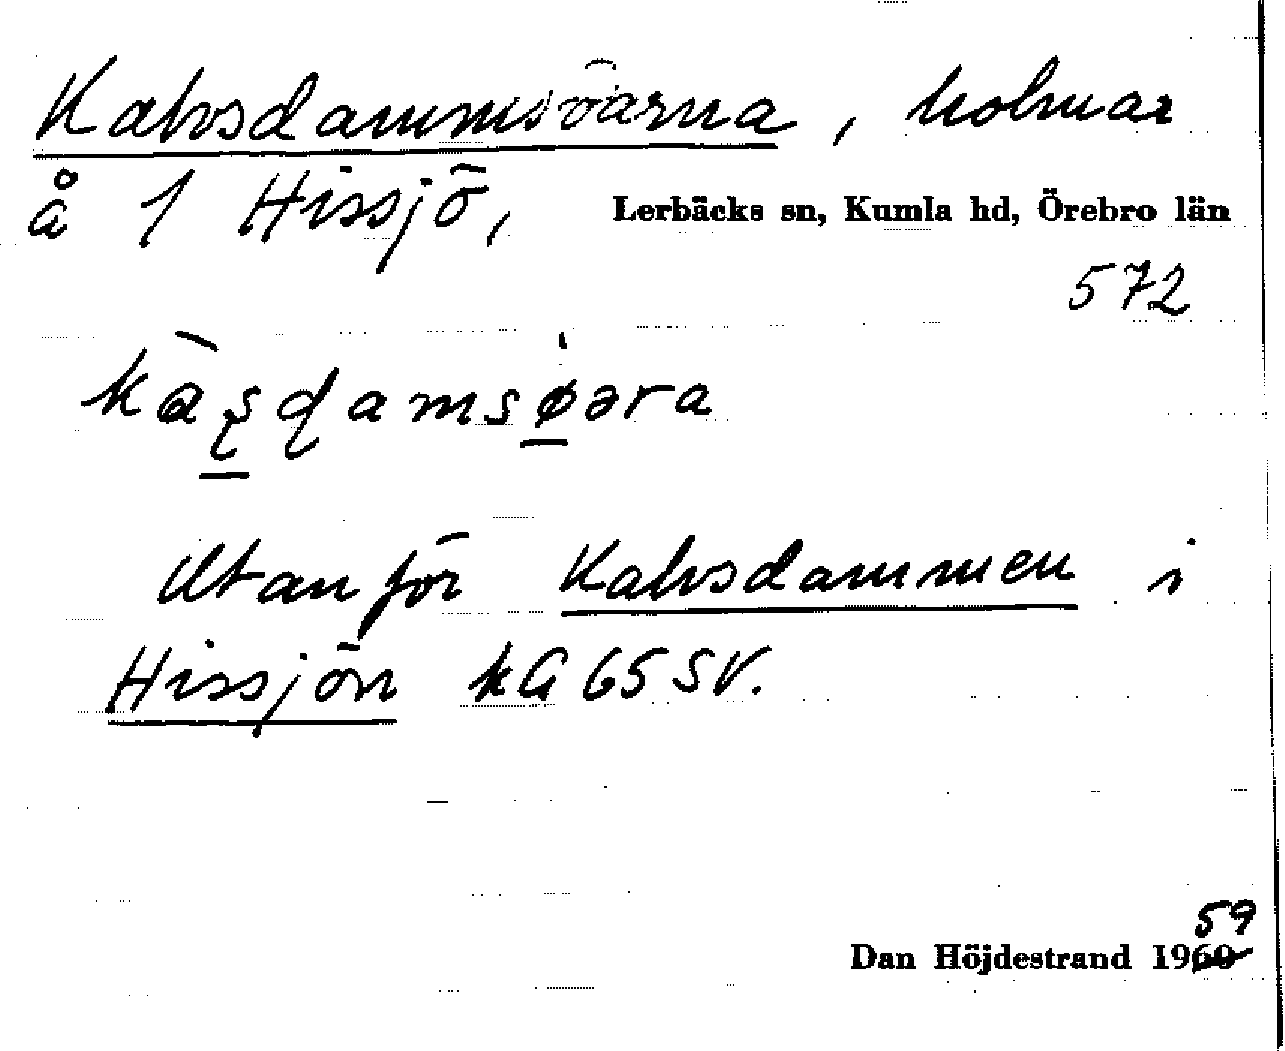 Kalvsdammsöarna, holmar
å 1 Hissjö, Lerbäcks sn, Kumla hd, Örebro län
572
kàʂɖamsøəra
Utanför Kalvsdammen i
Hissjön kG65SV.
59
Dan Höjdestrand 1960